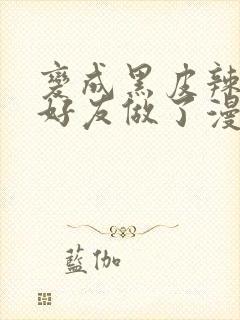 變成黑皮辣
好友做了漫
藍伽